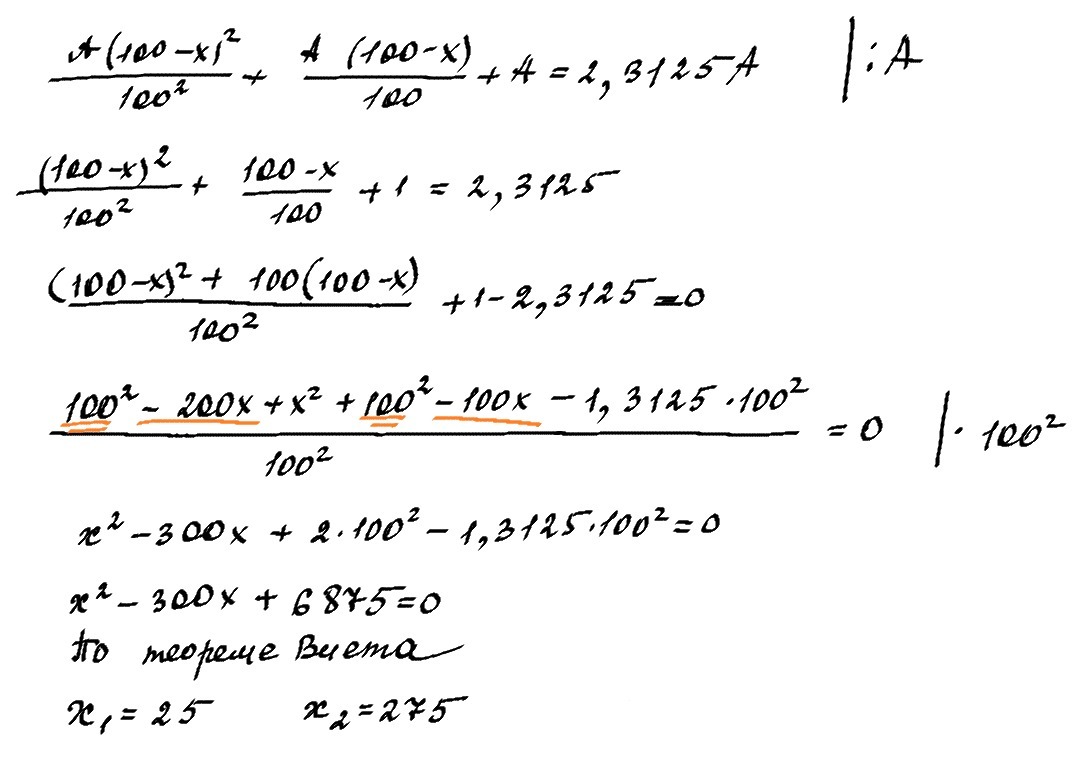 A(100-x)²/100² + A(100-x)/100 + A = 2,3125A |:A
(100-x)²/100² + 100-x/100 + 1 = 2,3125
(100-x)² + 100(100-x)/100² + 1 - 2,3125 = 0
100² - 200x + x² + 100² - 100x - 1,3125·100²/100² = 0 |·100²
x² - 300x + 2·100² - 1,3125·100² = 0
x² - 300x + 6875 = 0
По теореме Виета
x₁ = 25 x₂ = 275